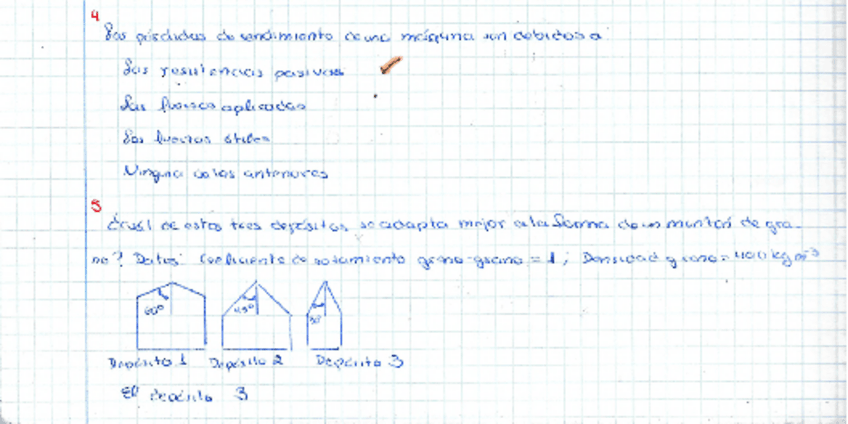 4
Las pérdidas de rendimiento de una máquina son debidas a:
Las resistencias pasivas
Las fuerzas aplicadas
Las fuerzas útiles
Ninguna de las anteriores
5
¿Cuál de estos tres depósitos se adapta mejor a la forma de un montón de gra-
no? Datos: Coeficiente de rozamiento grano-grano = 1; Densidad grano = 400 kg m⁻³
60° 45° 30°
Depósito 1 Depósito 2 Depósito 3
El depósito 3